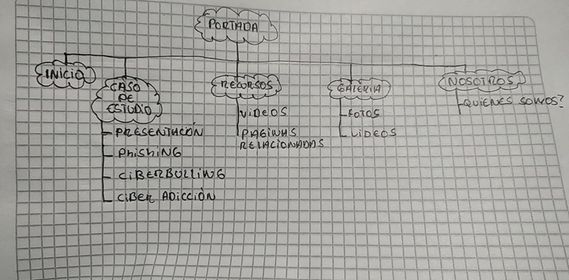 PORTADA
INICIO
CASO
DE
ESTUDIO
PRESENTACIÓN
PHISHING
CIBERBULLING
CIBER ADICCIÓN
RECURSOS
VIDEOS
PAGINAS
RELACIONADAS
GALERIA
FOTOS
VIDEOS
NOSOTROS
QUIENES SOMOS?